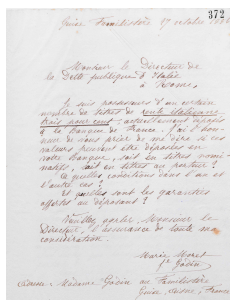 372
Guise Familistère 27 octobre
Monsieur le Directeur de
la Dette publique d'Italie
à Rome
Je suis possesseur d'un certain
nombre de titres de rente italienne
trois pour cent, actuellement déposés
à la Banque de France. J'ai l'hon-
neur de vous prier de me dire si ces
valeurs peuvent être déposées en
votre banque, soit en titres nomi-
natifs, soit en titres au porteur
à quelles conditions dans l'un et
l'autre cas ?
Et quelles sont les garanties
offertes au déposant ?
Veuillez agréer, Monsieur le
Directeur, l'assurance de toute ma
considération.
Marie Moret
Vve Godin
Adresse : Madame Godin au Familistère
Guise, Aisne, France